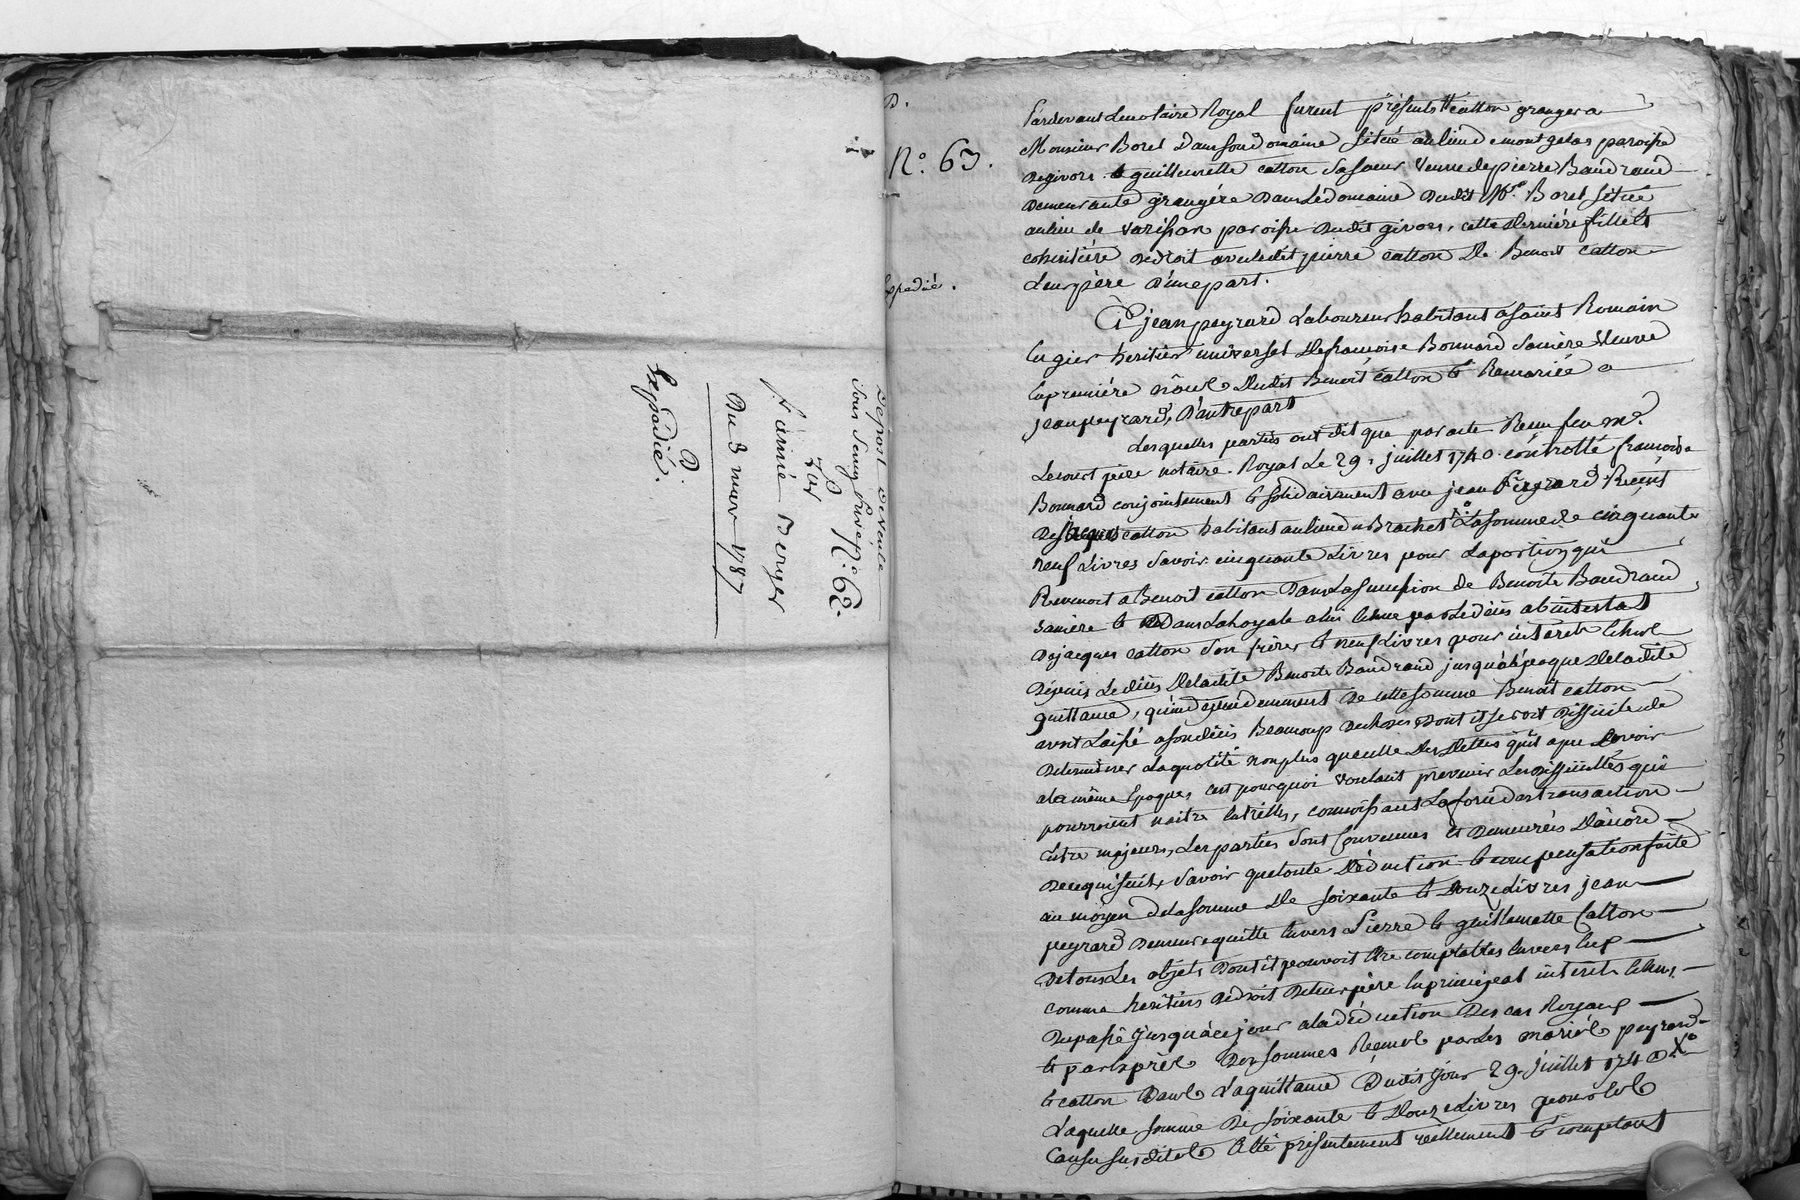 Depost De Vente
sous Seing Privé No 62.
Par
aimé Berger
Du 3 mars 1787
D.
Expédié.
D.
No. 63.
expedié.
Pardevant Le notaire Royal furent présents catton granger a
Monsieur Borel Dans son Domaine situé au lieu de montgelas paroisse
de givors. & guillemette catton sa soeur veuve de pierre Baudrand
demeurante grangére Dans le domaine dudit Mr. Borel situé
au lieu de varissan paroisse dudit givors, cette Derniére fille et
cohéritiére de droit avec ledit pierre catton De Benoit catton
Leur pére D'une part.
Et jean peyrard Laboureur habitant a saint Romain
en gier heritier universel de francoise Bonnard sa mère veuve
en premiére nôces Dudit Benoit catton & Remariée a
jean peyrard, D'autre part
Lesquelles parties ont dit que par acte Reçu feu me.
Lecourt pére notaire Royal Le 29. juillet 1740. contrôllé francoise
Bonnard conjointement & solidairement avec jean Peyrard Reçut
de jacques catton habitant au lieu du Brachet La somme de cinquante
neuf Livres savoir cinquante Livres pour La portion qui
Revenoit a Benoit catton Dans La succession de Benoite Baudrand
sa mére & Dans La hoyrie a lui échue par Le décès abintestat
de jacques catton son frére & neuf Livres pour intérêts échus
Depuis Le décès De ladite Benoite Baudrand jusqu'à l'époque De ladite
quittance, qu'independemment De cette somme Benoit catton
avoit Laissé a son décès Beaucoup de choses Dont il seroit Difficile de
Determiner La quotité non plus que celle Des Dettes qu'il a pu devoir
a la même Epoque, c'est pourquoi voulant prevenir Les difficultés qui
pourroient naitre entr'elles, connoissant La force des transaction
entre majeurs, Les parties sont Convenues & Demeurées D'accord
De ce qui suit, savoir que toute Déduction & compensation faite
au moyen de la somme De soixante & Douze Livres jean
peyrard Demeure quitte envers Pierre & guillemette Catton
de tous Les objets Dont il pouvoit être comptables envers eux
comme heritiers de droit De leur pére en principal intérêts échus
Du passé jusqu'à ce jour a la déduction Des cas Royaux
& par Exprès Des sommes Reçues par Les mariés peyrard
& catton Dans La quittance Dudit jour 29. juillet 1740
Laquelle somme De soixante & Douze Livres pour les
Causes susdites a Eté présentement réellement & comptant